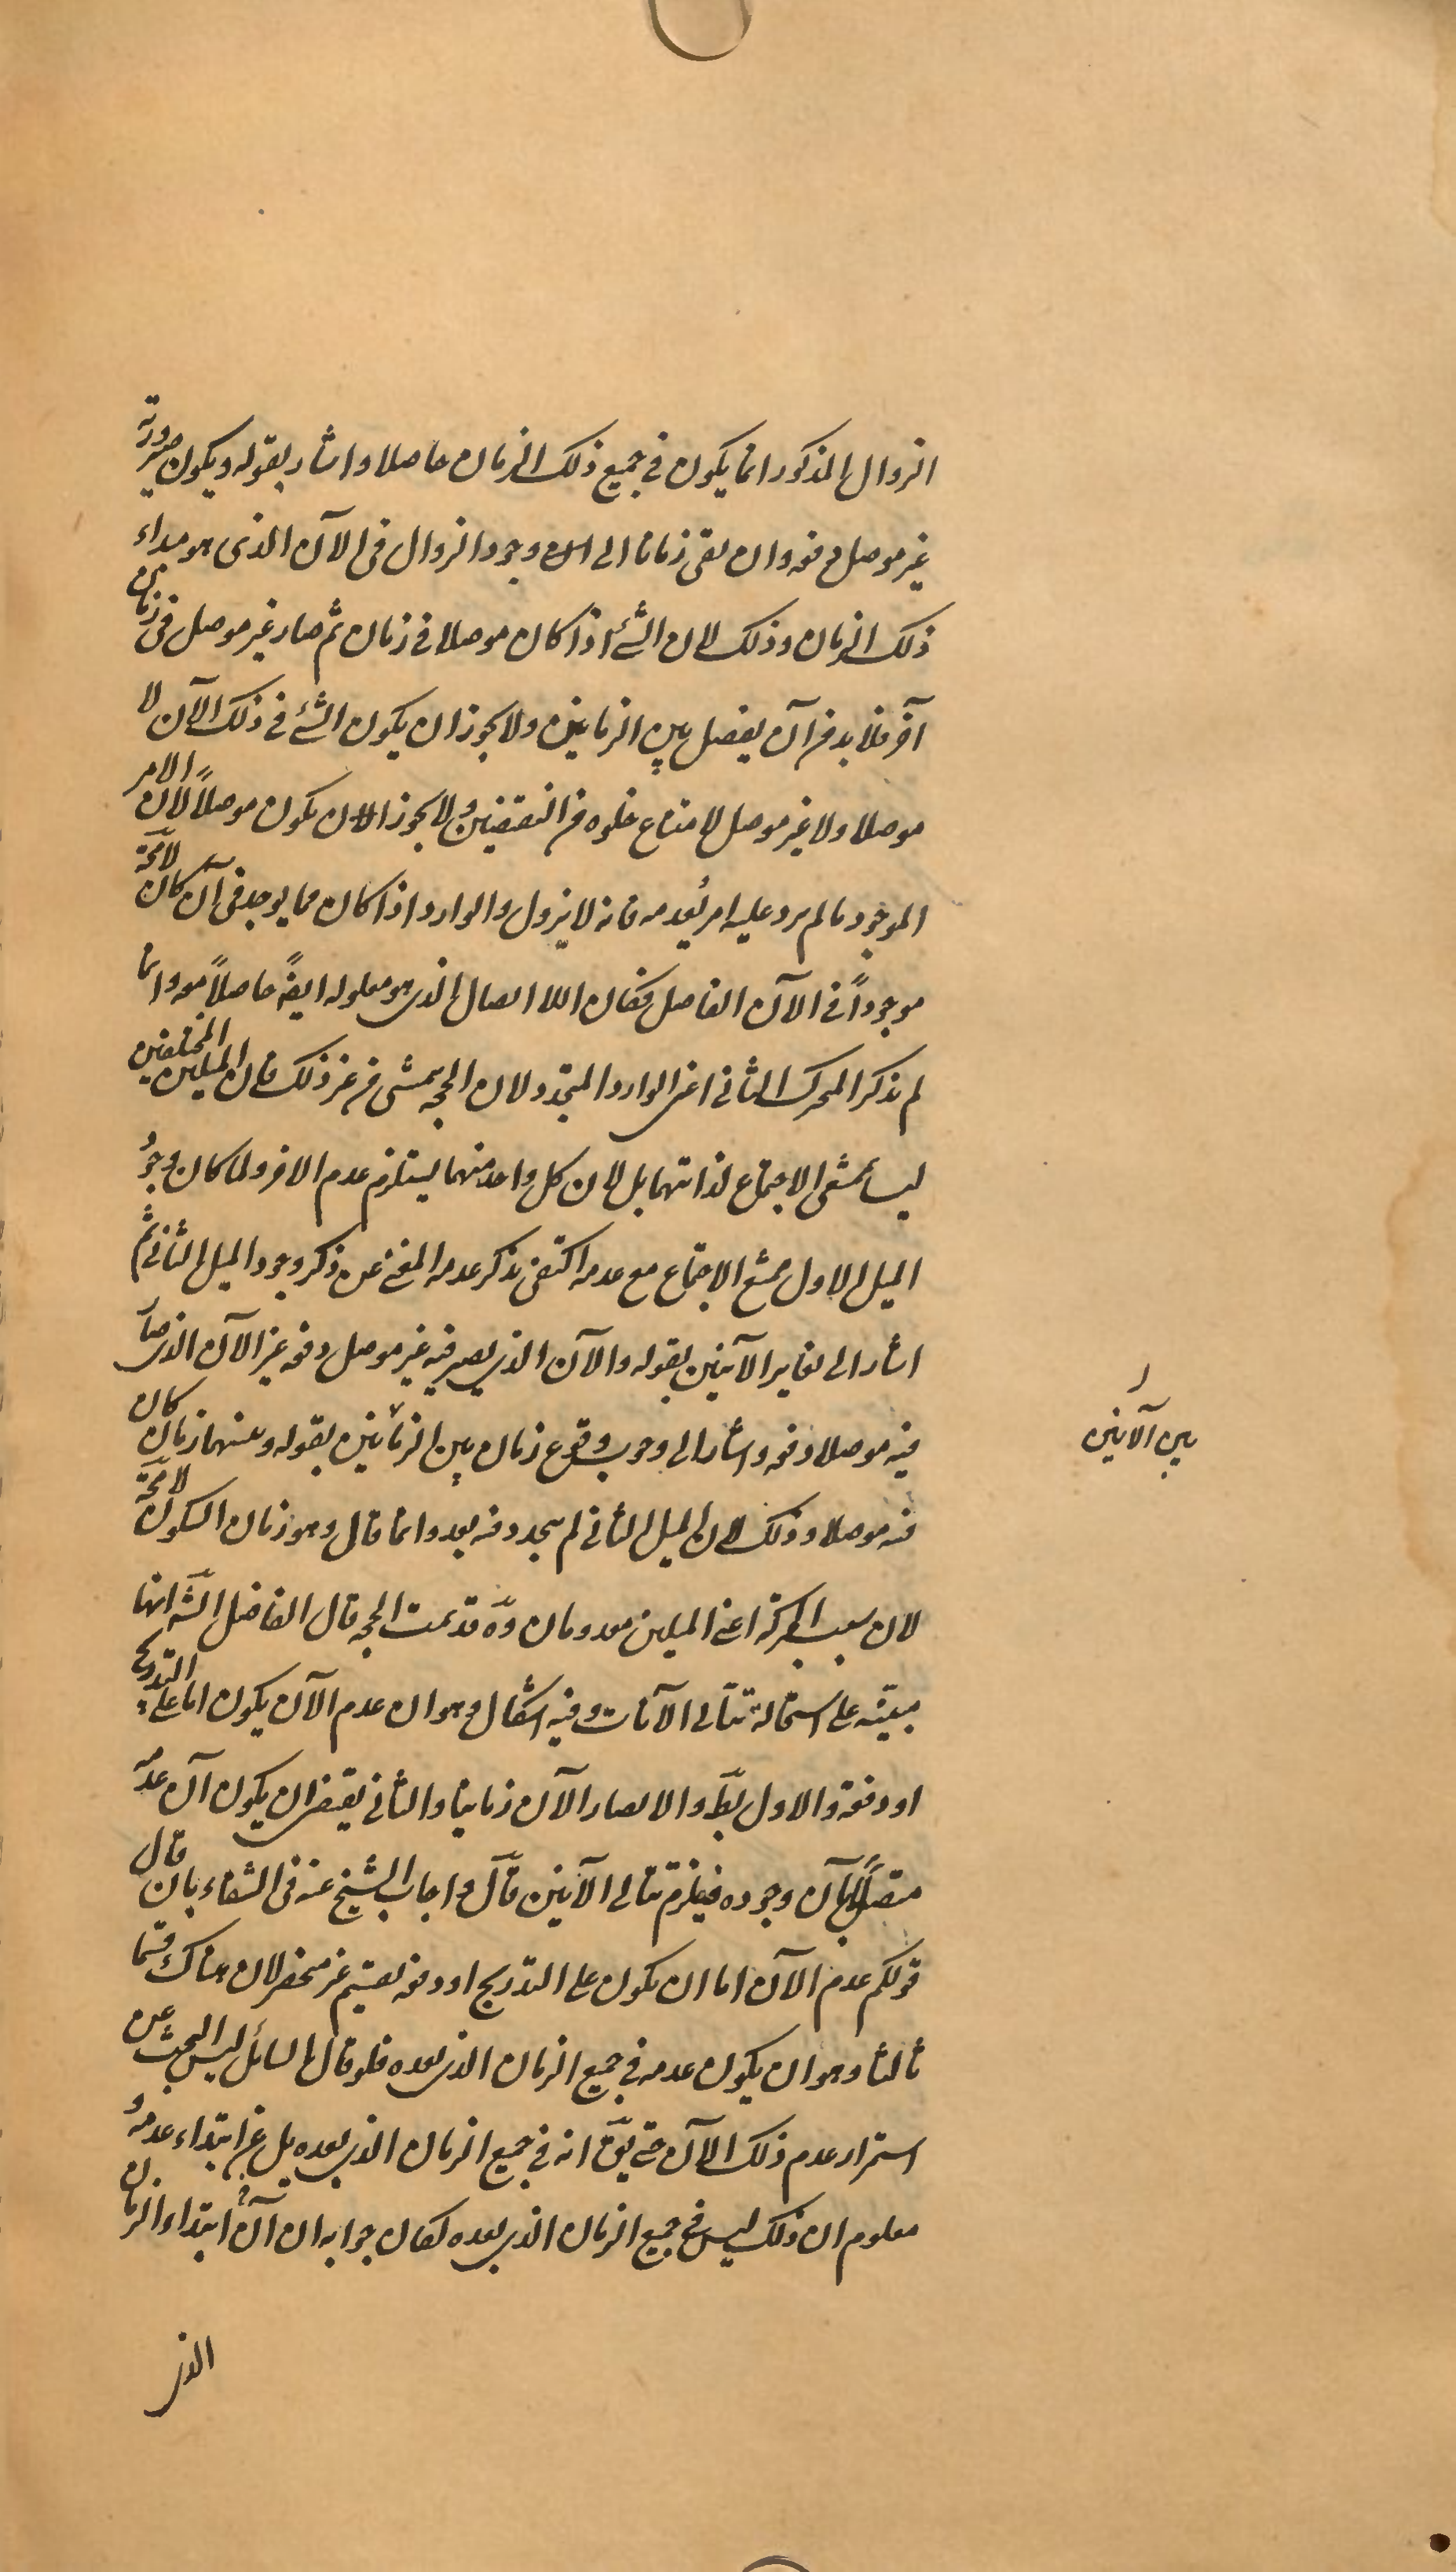 الزوال المذكور انما يكون فى جميع ذلك الزمان حاصلا واشار بقوله ويكون صيرورته
غير موصل دفعه وان بقى زمانا الى ان وجود الزوال فى الآن الذى هو مبداء
ذلك الزمان وذلك لان الشئ اذا كان موصلا فى زمان ثم صار غير موصل فى زمان
آخر فلا بد من آن يفصل بين الزمانين ولا يجوز ان يكون الشئ فى ذلك الآن لا
موصلا ولا غير موصل لامتناع خلوه من النقيضين ولا يجوز ان يكون موصلاً لان الامر
الموجود ما لم يرد عليه امر يُعدمه فانه لا يزول والوارد اذا كان مما يوجد فى آن كان لامحة
موجوداً فى الآن الفاصل فكان اللا ايصال الذى هو معلوله ايضً حاصلاً معه وانما
لم يذكر المحرك الثانى اعنى الوارد المتجدد لان الحجه يتمشى من غير ذلك فان الميلين المختلفين
ليسا بممتنعى الاجتماع لذاتهما بل لان كل واحد منهما يستلزم عدم الاخر ولما كان وجود
الميل الاول ممتنع الاجتماع مع عدمه اكتفى بذكر عدمه المغنى عن ذكر وجود الميل الثانى ثم
اشار الى تغاير الآنين بقوله والآن الذى يصير فيه غير موصل دفعه غير الآن الذى صار
فيه موصلا دفعه واشار الى وجوب وقوع زمان بين الزمانين بقوله وبينهما زمان كان
فيه موصلا وذلك لان الميل الثانى لم يتجدد فيه بعد وانما قال وهو زمان السكون لامحة
لان سبب الحركة اعنى الميلين معدومان وقد تمت الحجه قال الفاضل الشّه انها
مبنيّه على استحالة تتالى الآنات وفيه اشكال وهو ان عدم الآن يكون اما على التدريج
او دفعة والاول بطّ والا لصار الآن زمانيا والثانى يقتضى ان يكون آن عدمه
متصلاً بآن وجوده فيلزم تتالى الآنين قال واجاب الشيخ عنه فى الشفاء بان قال
قولكم عدم الآن اما ان يكون على التدريج او دفعه تقسيم غير منحصر لان هناك قسما
ثالثا وهو ان يكون عدمه فى جميع الزمان الذى بعده فلو قال السائل ليس البحث عن
استمرار عدم ذلك الآن حتى يقّ انه فى جميع الزمان الذى بعده بل عن ابتداء عدمه و
معلوم ان ذلك ليس فى جميع الزمان الذى بعده لكان جوابه ان آن ابتداء الزمان
الذى
بين الآنين